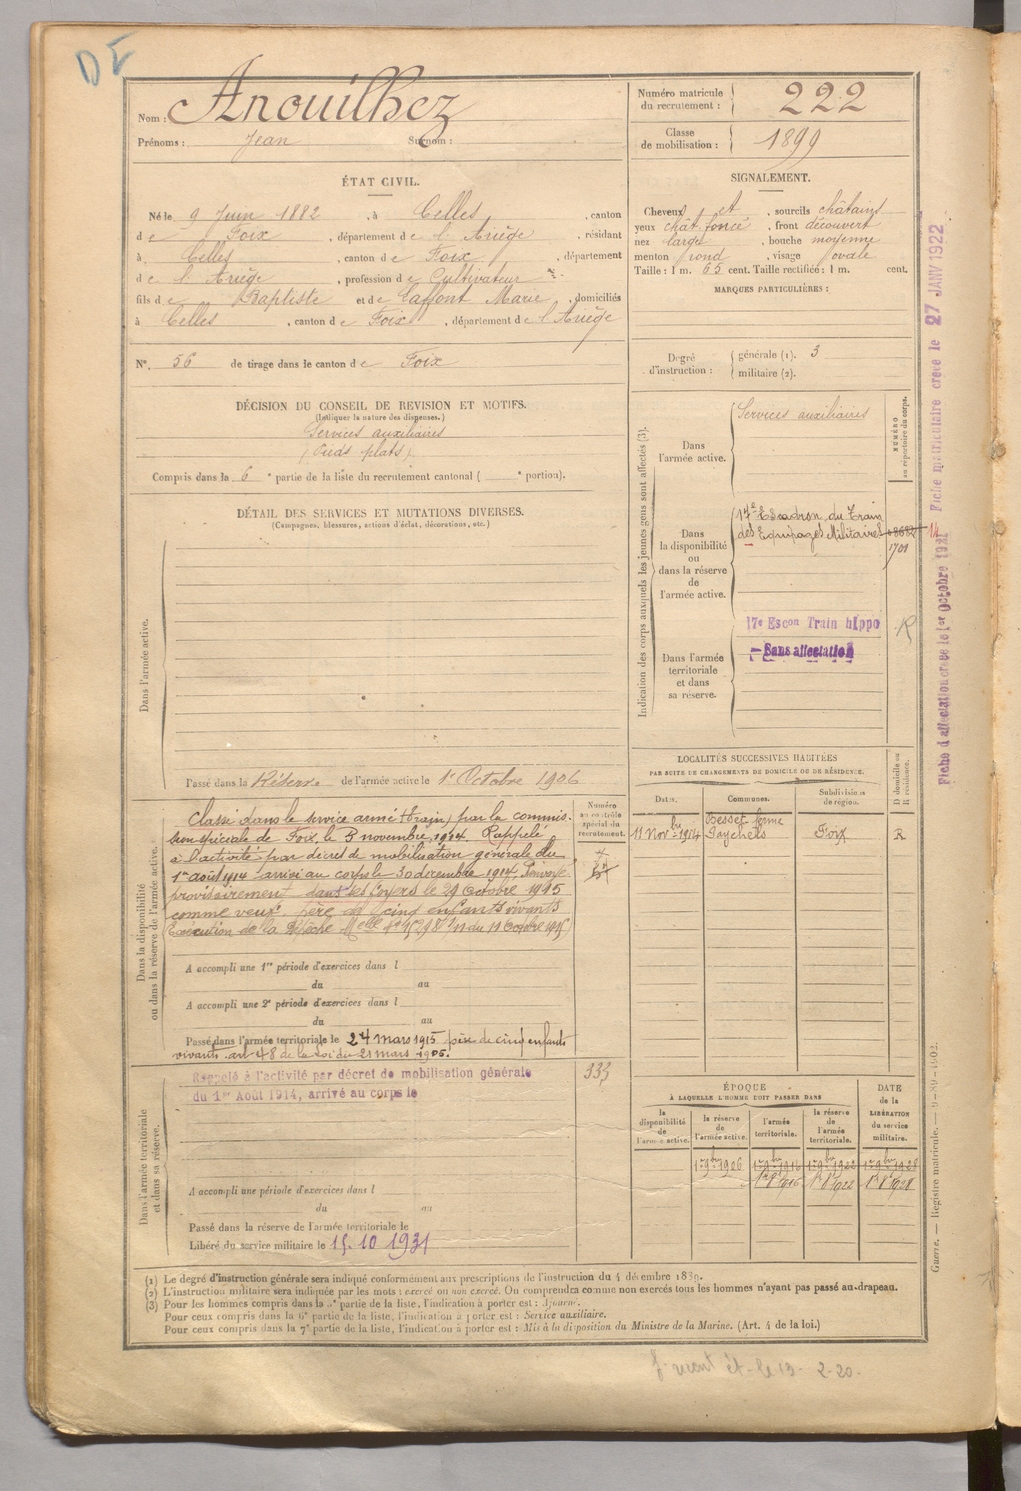 DE
Nom : Anouilhez
Prénoms : Jean Surnom :
Numéro matricule du recrutement : 222
Classe de mobilisation : 1899
ÉTAT CIVIL.
Né le 9 Juin 1882, à Celles, canton
de Foix, département de l'Ariège, résidant
à Celles, canton de Foix, département
de l'Ariège, profession de Cultivateur
fils de Baptiste et de Laffont Marie, domiciliés
à Celles, canton de Foix, département de l'Ariège
N°. 56 de tirage dans le canton de Foix
DÉCISION DU CONSEIL DE REVISION ET MOTIFS.
(Indiquer la nature des dispenses.)
Services auxiliaires
(Pieds plats)
Compris dans la 6e partie de la liste du recrutement cantonal ( e portion).
SIGNALEMENT.
Cheveux et, sourcils châtains
yeux chât foncé, front découvert
nez large, bouche moyenne
menton rond, visage ovale
Taille : 1 m. 65 cent. Taille rectifiée : 1 m. cent.
MARQUES PARTICULIÈRES :
Degré d'instruction :
générale (1). 3
militaire (2).
DÉTAIL DES SERVICES ET MUTATIONS DIVERSES.
(Campagnes, blessures, actions d'éclat, décorations, etc.)
Dans l'armée active.
Passé dans la Réserve de l'armée active le 1er Octobre 1906
Indication des corps auxquels les jeunes gens sont affectés (3).
NUMÉRO au répertoire du corps.
Dans l'armée active.
Services auxiliaires
Dans la disponibilité ou dans la réserve de l'armée active.
17e Escadron du Train
des Equipages Militaires
14
1701
17e Escon Train hippo
R
Sans affectation
Dans l'armée territoriale et dans sa réserve.
Fiche d'affectation créée le 1er octobre 1921 Fiche matriculaire créée le 27 JANV 1922
Dans la disponibilité ou dans la réserve de l'armée active.
Numéro au contrôle spécial du recrutement.
Classé dans le service armé (train) par la commis-
sion spéciale de Foix, le 3 novembre 1914. Rappelé
à l'activité par décret de mobilisation générale du
1er août 1914 arrivé au corps le 30 décembre 1914 Renvoyé
provisoirement dans ses foyers le 29 Octobre 1915
comme veuf, père de cinq enfants vivants
Exécution de la Dépêche Melle 11 Octobre 1915
A accompli une 1re période d'exercices dans l
du au
A accompli une 2e période d'exercices dans l
du au
Passé dans l'armée territoriale le 24 mars 1915 père de cinq enfants
vivants. art 48 de la loi du 21 mars 1905.
LOCALITÉS SUCCESSIVES HABITÉES
PAR SUITE DE CHANGEMENTS DE DOMICILE OU DE RÉSIDENCE.
Dates. Communes. Subdivisions de région. D domicile ou R résidence.
11 Novbre 1914 Besset ferme Foix R
Dans l'armée territoriale et dans sa réserve.
Rappelé à l'activité par décret de mobilisation générale
du 1er Août 1914, arrivé au corps le
333
A accompli une période d'exercices dans l
du au
Passé dans la réserve de l'armée territoriale le
Libéré du service militaire le 15. 10 1931
ÉPOQUE
À LAQUELLE L'HOMME DOIT PASSER DANS
la disponibilité de l'armée active. la réserve de l'armée active. l'armée territoriale. la réserve de l'armée territoriale. DATE de la LIBÉRATION du service militaire.
1er 9bre 1906 1er 9bre 1916 1er 9bre 1922 1er 9bre 1928
1er 8bre 1916 1er 8bre 1922 1er 8bre 1928
Guerre. — Registre matricule. — 9-89-1902.
(1) Le degré d'instruction générale sera indiqué conformément aux prescriptions de l'instruction du 4 décembre 1889.
(2) L'instruction militaire sera indiquée par les mots : exercé ou non exercé. On comprendra comme non exercés tous les hommes n'ayant pas passé au drapeau.
(3) Pour les hommes compris dans la 5e partie de la liste, l'indication à porter est : Ajourné.
Pour ceux compris dans la 6e partie de la liste, l'indication à porter est : Service auxiliaire.
Pour ceux compris dans la 7e partie de la liste, l'indication à porter est : Mis à la disposition du Ministre de la Marine. (Art. 4 de la loi.)
le 13 - 2-20.